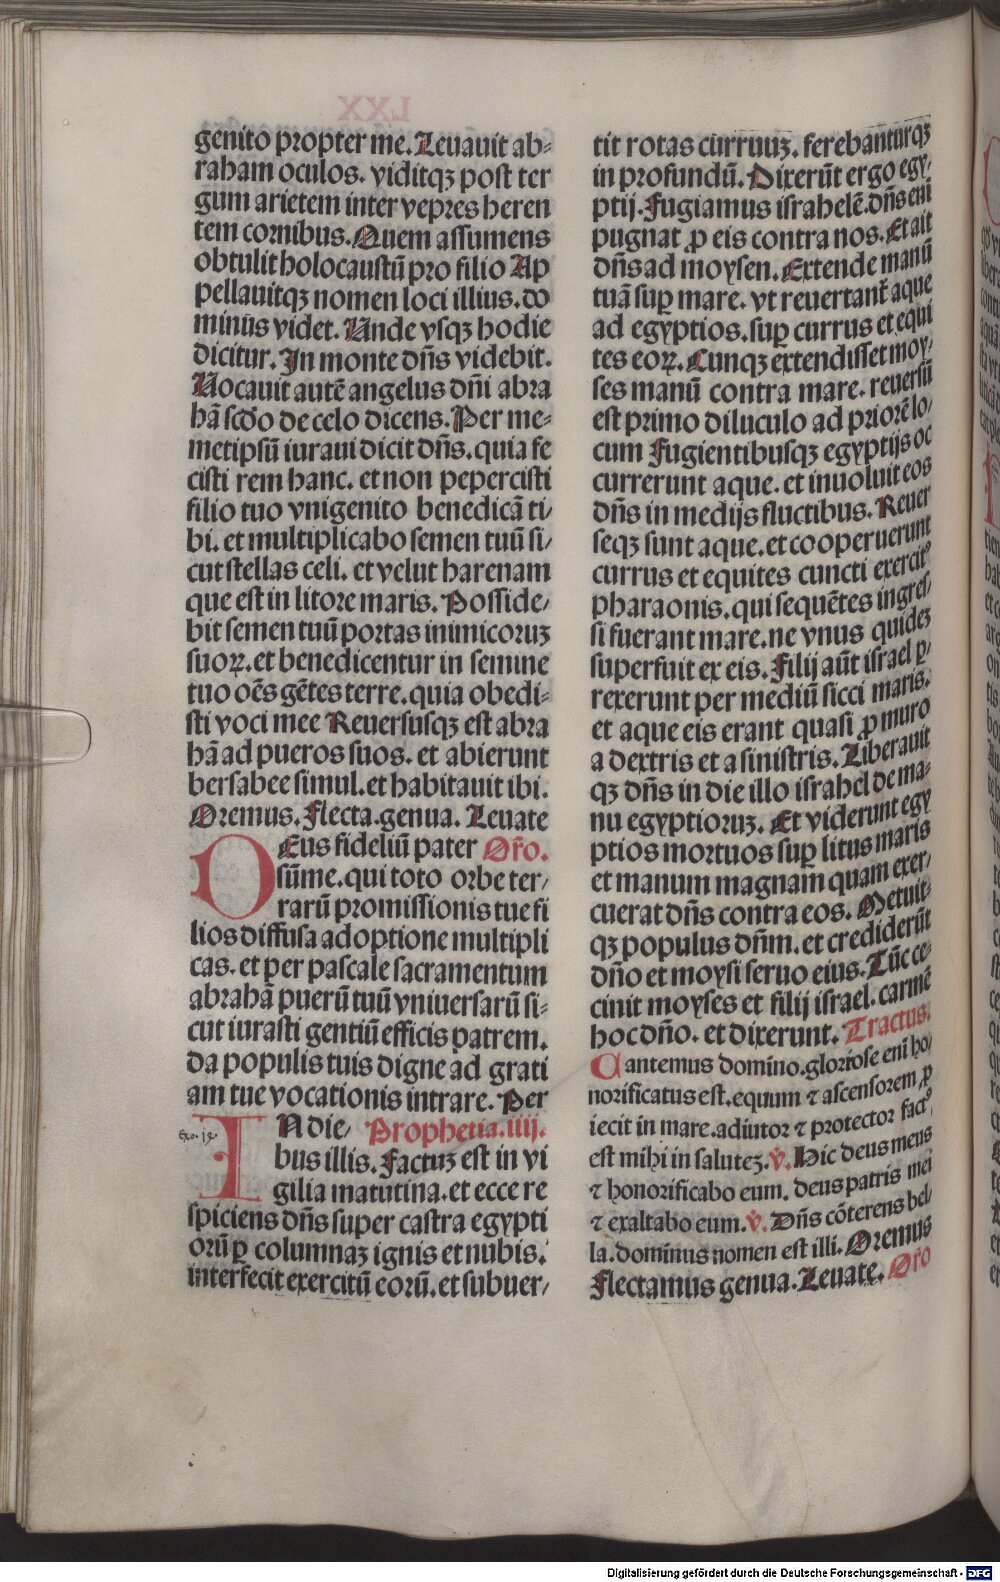 genito propter me. Leuauit ab⸗
raham oculos. viditqꝫ post ter
gum arietem inter vepres heren
tem cornibus. Quem assumens
obtulit holocaustū pro filio Ap
pellauitqꝫ nomen loci illius. do
minus videt. Unde vsqꝫ hodie
dicitur. In monte dn̄s videbit.
Uocauit autē angelus dn̄i abra
hā scd̄o de celo dicens. Per me⸗
metipsū iuraui dicit dn̄s. quia fe
cisti rem hanc. et non pepercisti
filio tuo vnigenito benedicā ti/
bi. et multiplicabo semen tuū si/
cut stellas celi. et velut harenam
que est in litore maris. Posside/
bit semen tuū portas inimicoruꝫ
suoꝝ. et benedicentur in semine
tuo oēs gētes terre. quia obedi⸗
sti voci mee Reuersusqꝫ est abra
hā ad pueros suos. et abierunt
bersabee simul. et habitauit ibi.
Oremus. Flecta. genua. Leuate
DEus fideliū pater Or̄o.
sūme. qui toto orbe ter/
rarū promissionis tue fi
lios diffusa adoptione multipli
cas. et per pascale sacramentum
abrahā puerū tuū vniuersarū si⸗
cut iurasti gentiū efficis patrem.
da populis tuis digne ad grati
am tue vocationis intrare. Per
IN die/ Prophetia. iiij.
bus illis. Factuꝫ est in vi
gilia matutina. et ecce re
spiciens dn̄s super castra egypti
orū ꝑ columnaꝫ ignis et nubis.
interfecit exercitū eorū. et subuer/
tit rotas curruuꝫ. ferebanturqꝫ
in profundū. Dixerūt ergo egy/
ptij. Fugiamus israhelē. dn̄s enī
pugnat ꝓ eis contra nos. Et ait
dn̄s ad moysen. Extende manū
tuā suꝑ mare. vt reuertant̄ aque
ad egyptios. suꝑ currus et equi
tes eoꝝ. Cunqꝫ extendisset moy/
ses manū contra mare. reuersū
est primo diluculo ad priorē lo/
cum Fugientibusqꝫ egyptijs oc
currerunt aque. et inuoluit eos
dn̄s in medijs fluctibus. Reuer
seqꝫ sunt aque. et cooperuerunt
currus et equites cuncti exercitꝰ
pharaonis. qui sequētes ingres/
si fuerant mare. ne vnus quideꝫ
superfuit ex eis. Filij aūt israel ꝑ/
rexerunt per mediū sicci maris.
et aque eis erant quasi ꝓ muro
a dextris et a sinistris. Liberauit
qꝫ dn̄s in die illo israhel de ma⸗
nu egyptioruꝫ. Et viderunt egy
ptios mortuos suꝑ litus maris
et manum magnam quam exer/
cuerat dn̄s contra eos. Metuit⸗
qꝫ populus dn̄m. et crediderūt
dn̄o et moysi seruo eius. Tūc ce⸗
cinit moyses et filij israel. carmē
hoc dn̄o. et dixerunt. Tractus.
Cantemus domino. gloriose enī ho/
norificatus est. equum ⁊ ascensorem ꝓ
iecit in mare. adiutor ⁊ protector factꝰ
est mihi in saluteꝫ. v̄. Hic deus meus
⁊ honorificabo eum. deus patris mei
⁊ exaltabo eum. v̄. Dn̄s cōterens bel/
la. dominus nomen est illi. Oremus
Flectamus genua. Leuate. Or̄o
Digitalisierung gefördert durch die Deutsche Forschungsgemeinschaft - DFG